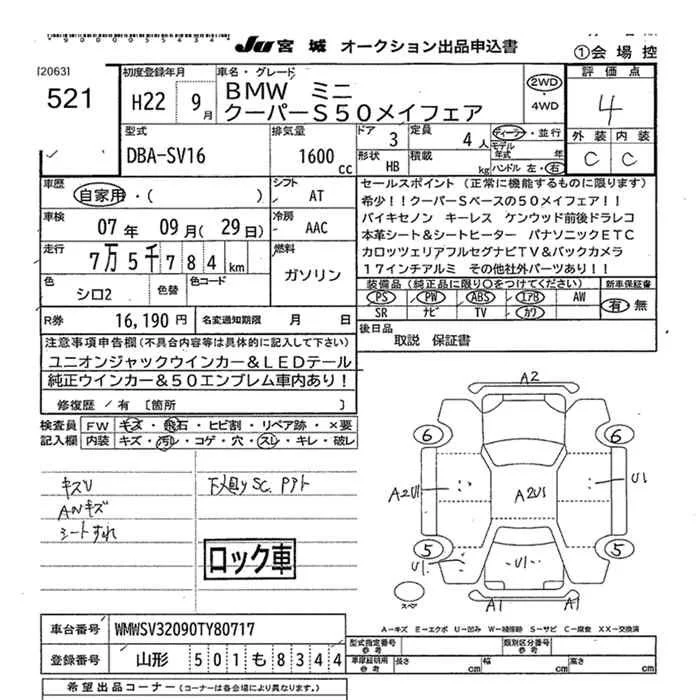 90000055434
JU 宮城 オークション出品申込書
①会場控
[2063]
521
初度登録年月
H22 9月
車名・グレード
BMW ミニ
クーパーS50メイフェア
2WD
・4WD
評価点
4
外装 内装
C C
型式
DBA-SV16
排気量
1600 cc
ドア 3
定員 4人
形状 HB
積載 kg
ディーラー・並行
モデル年式 年
ハンドル 左・右
車歴
自家用・( )
シフト
AT
車検
07年 09月(29日)
冷房
AAC
走行
7万5千784km
燃料
ガソリン
色
シロ2
色替
色コード
R券 16,190円
名変通知期限 月 日
セールスポイント (正常に機能するものに限ります)
希少!!クーパーSベースの50メイフェア!!
バイキセノン キーレス ケンウッド前後ドラレコ
本革シート&シートヒーター パナソニックETC
カロッツェリアフルセグナビTV&バックカメラ
17インチアルミ その他社外パーツあり!!
装備品 (純正品に限り○をつけてください)
新車保証書
PS PW ABS エアB AW
SR ナビ TV カワ
有・無
後日品
取説 保証書
注意事項申告欄(不具合内容等は具体的に記入して下さい)
ユニオンジャックウインカー&LEDテール
純正ウインカー&50エンブレム車内あり!
修復歴/有〔箇所 〕
検査員記入欄
FW キズ・飛石・ヒビ割・リペア跡・×要
内装 キズ・汚レ・コゲ・穴・スレ・キレ・破レ
キズU
ANキズ
シートすれ
ロック車
A2
6 6
A2U1
A2U1
U1
5 5
U1
U1
スペア
A1 A1
A-キズ E-エクボ U-凹み W-補修跡 S-サビ C-腐食 XX-交換済
車台番号 WMWSV32090TY80717
登録番号 山形 501 も 8344
型式指定番号 参考
類別区分番号 参考
車庫証明用 参考
長さ cm
幅 cm
高さ cm
希望出品コーナー (コーナーは各会場により異なります。)